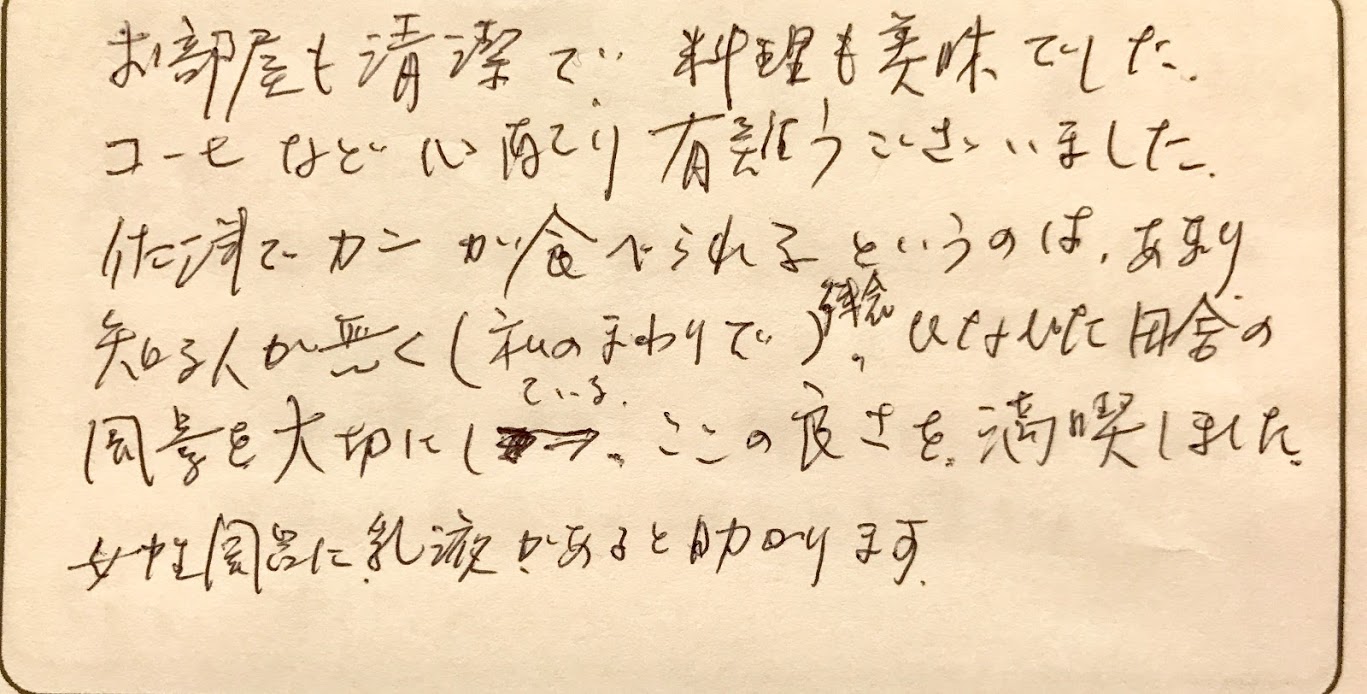 お部屋も清潔で、料理も美味でした。
コーヒなど心配り有難うございました。
佐渡でカニが食べられるというのは、あまり
知る人が無く(私のまわりで)残念。ひなびた田舎の
風景を大切にしている。ここの良さを満喫しました。
女性風呂に乳液があると助かります。